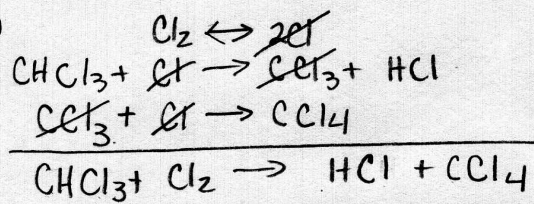 )
Cl₂ ↔ 2Cl
CHCl₃ + Cl → CCl₃ + HCl
CCl₃ + Cl → CCl₄
CHCl₃ + Cl₂ → HCl + CCl₄